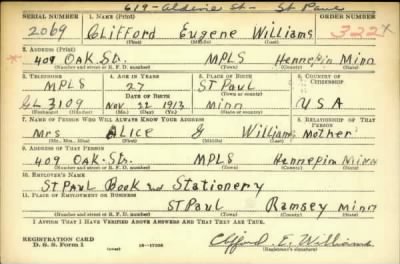 619 - Aldine St - St Paul
SERIAL NUMBER 1. NAME (Print) ORDER NUMBER
2069 CLifford Eugene Williams 322 x
(First) (Middle) (Last)
2. ADDRESS (Print)
* 409 OAK. St. MPLS Hennepin Minn
(Number and street or R. F. D. number) (Town) (County) (State)
3. TELEPHONE 4. AGE IN YEARS 5. PLACE OF BIRTH 6. COUNTRY OF CITIZENSHIP
MPLS 27 ST PAUL
DATE OF BIRTH (Town or county)
GL 3109 Nov 22 1913 Minn USA
(Exchange) (No.) (Mo.) (Day) (Yr.) (State or country)
7. NAME OF PERSON WHO WILL ALWAYS KNOW YOUR ADDRESS 8. RELATIONSHIP OF THAT PERSON
Mrs ALICE G Williams Mother
(Mr., Mrs., Miss) (First) (Middle) (Last)
9. ADDRESS OF THAT PERSON
409 OAK. St. MPLS Hennepin Minn
(Number and street or R. F. D. number) (Town) (County) (State)
10. EMPLOYER'S NAME
ST PAUL Book and Stationery
11. PLACE OF EMPLOYMENT OR BUSINESS
ST PAUL Ramsey Minn
(Number and street or R. F. D. number) (Town) (County) (State)
I AFFIRM THAT I HAVE VERIFIED ABOVE ANSWERS AND THAT THEY ARE TRUE.
REGISTRATION CARD
D. S. S. Form 1 Clifford E. Williams
(Registrant's signature)